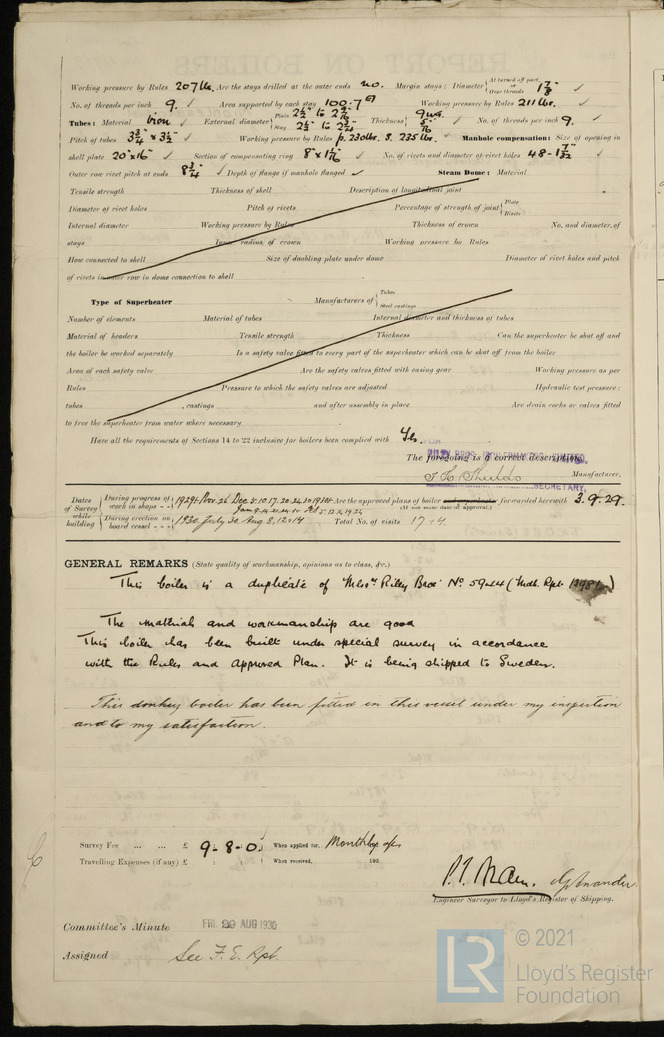 Working pressure by Rules 207 lbs. Are the stays drilled at the outer ends no. Margin stays: Diameter { At turned off part, or Over threads 1 7/8"
No. of threads per inch 9. ✓ Area supported by each stay 100.7 ✓ Working pressure by Rules 211 lbs.
Tubes: Material iron ✓ External diameter { Plain 2½" Stay 2½" Thickness { 9 wg. 5/16" ✓ No. of threads per inch 9. ✓
Pitch of tubes 3¾" x 3½" ✓ Working pressure by Rules p. 230 lbs. s. 235 lbs. Manhole compensation: Size of opening in
shell plate 20" x 16" ✓ Section of compensating ring No. of rivets and diameter of rivet holes ✓
Outer row rivet pitch at ends 8¾" ✓ Depth of flange if manhole flanged ✓ Steam Dome: Material
Tensile strength Thickness of shell Description of longitudinal joint
Diameter of rivet holes Pitch of rivets Percentage of strength of joint { Plate Rivets
Internal diameter Working pressure by Rules Thickness of crown No. and diameter of
stays Inner radius of crown Working pressure by Rules
How connected to shell Size of doubling plate under dome Diameter of rivet holes and pitch
of rivets in outer row in dome connection to shell
Type of Superheater Manufacturers of { Tubes Steel castings
Number of elements Material of tubes Internal diameter and thickness of tubes
Material of headers Tensile strength Thickness Can the superheater be shut off and
the boiler be worked separately Is a safety valve fitted to every part of the superheater which can be shut off from the boiler
Area of each safety valve Are the safety valves fitted with easing gear Working pressure as per
Rules Pressure to which the safety valves are adjusted Hydraulic test pressure:
tubes , castings and after assembly in place Are drain cocks or valves fitted
to free the superheater from water where necessary
Have all the requirements of Sections 14 to 22 inclusive for boilers been complied with Yes.
FOR
RILEY BROS. (BOILERMAKERS) LIMITED,
The foregoing is a correct description,
Manufacturer.
SECRETARY.
Dates of Survey while building { During progress of work in shops - - 1929: Nov. 26 Dec. 5. 10. 17. 20. Are the approved plans of boiler and superheater forwarded herewith 3.9.29.
(If not state date of approval.)
During erection on board vessel - - - 1930 July 30 Aug 8, 12 + 14 Total No. of visits 17 + 4
GENERAL REMARKS (State quality of workmanship, opinions as to class, &c.)
This boiler is a duplicate of Messrs Riley Bros' No 5944 (Mdb. Rpt.
The materials and workmanship are good
This boiler has been built under special survey in accordance
with the Rules and Approved Plan. It is being shipped to Sweden.
This donkey boiler has been fitted in this vessel under my inspection
and to my satisfaction.
Survey Fee ... ... £ 9 - 8 - 0 When applied for, Monthly a/c
Travelling Expenses (if any) £ : : When received, 192
Engineer Surveyor to Lloyd's Register of Shipping.
Committee's Minute FRI. 29 AUG 1930
Assigned See F. E. Rpt.
© 2021
LR Lloyd's Register
Foundation